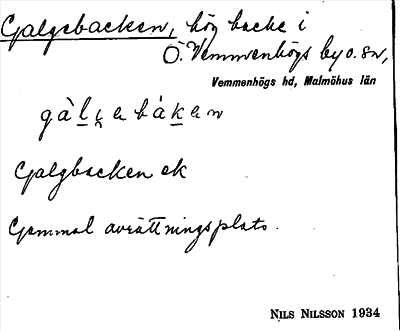 Galgebacken, hög backe i
Ö. Vemmenhögs by o. sn,
Vemmenhögs hd, Malmöhus län
Galgbacken ek
Gammal avrättningsplats.
NILS NILSSON 1934